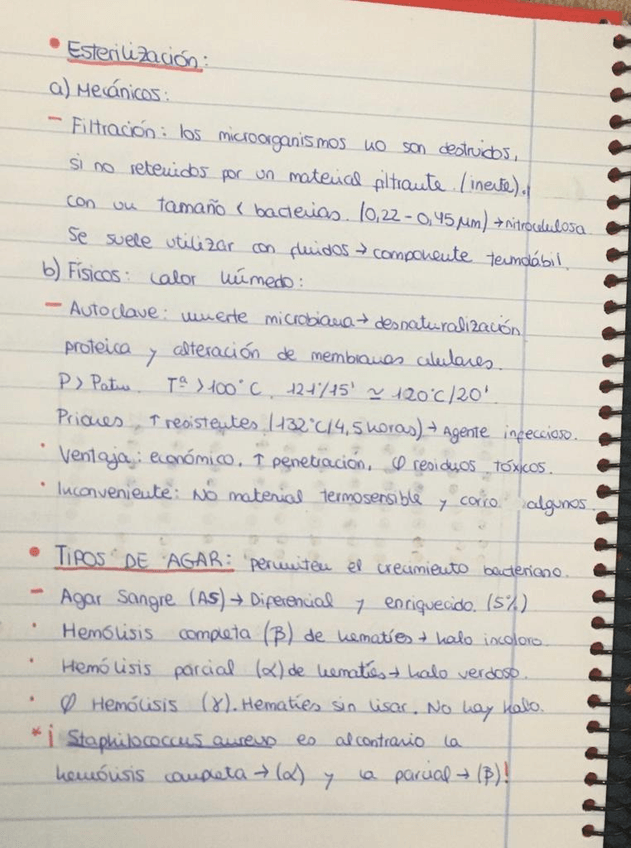 • Esterilización:
a) Mecánicos:
- Filtración: los microorganismos no son destruidos,
si no retenidos por un material filtrante (inerte),
con un tamaño < bacterias. (0,22-0,45 μm) → nitrocelulosa.
Se suele utilizar con fluidos → componente termolábil.
b) Físicos: calor húmedo:
- Autoclave: muerte microbiana → desnaturalización
proteica y alteración de membranas celulares.
P > Patm. Tª > 100°C. 121°/15' ≃ 120°C/20'
Priones, ↑ resistentes (132°C/4,5 horas) → Agente infeccioso.
• Ventaja: económico, ↑ penetración, ∅ residuos tóxicos.
• Inconveniente: No material termosensible y corro. algunos.
• TIPOS DE AGAR: permiten el crecimiento bacteriano.
- Agar Sangre (AS) → Diferencial y enriquecido. (5%)
• Hemólisis completa (β) de hematíes → halo incoloro.
• Hemólisis parcial (α) de hematíes → halo verdoso.
• ∅ Hemólisis (γ). Hematíes sin lisar. No hay halo.
* ¡ Staphilococcus aureus es al contrario la
hemólisis completa → (α) y la parcial → (β)!